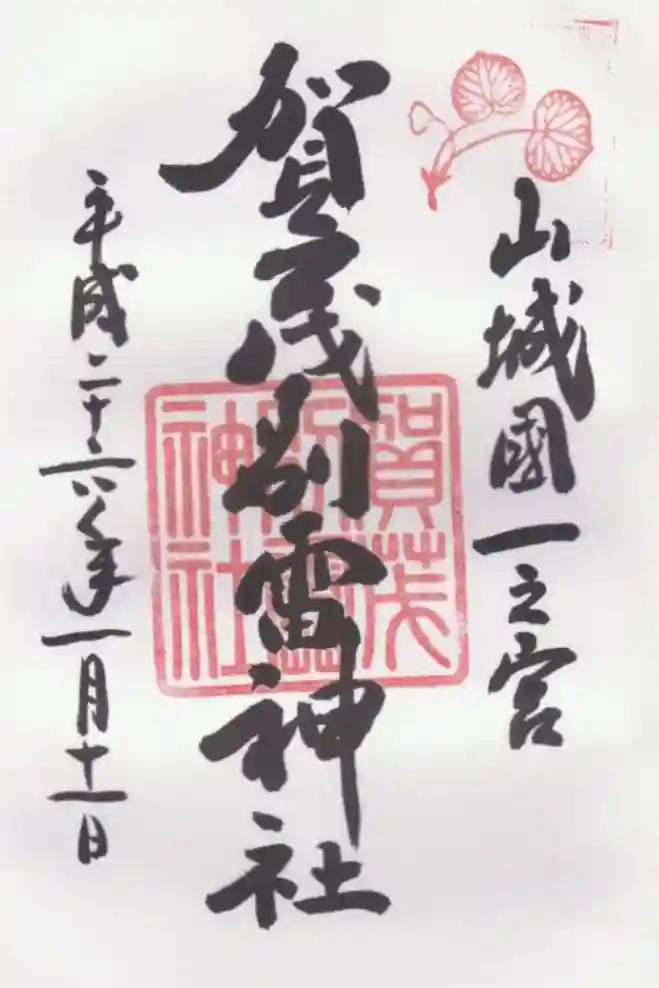 山城國一之宮
賀茂別雷神社
賀茂別雷神社
平成二十六年一月十一日